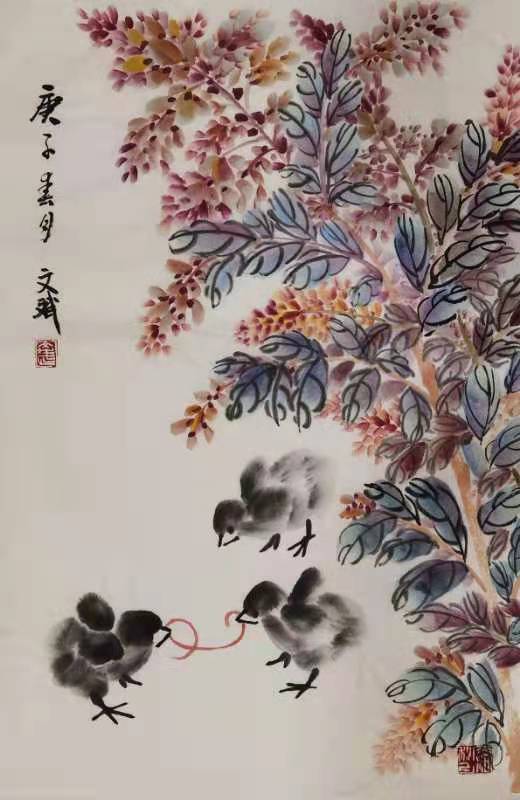 庚子春月
文斌